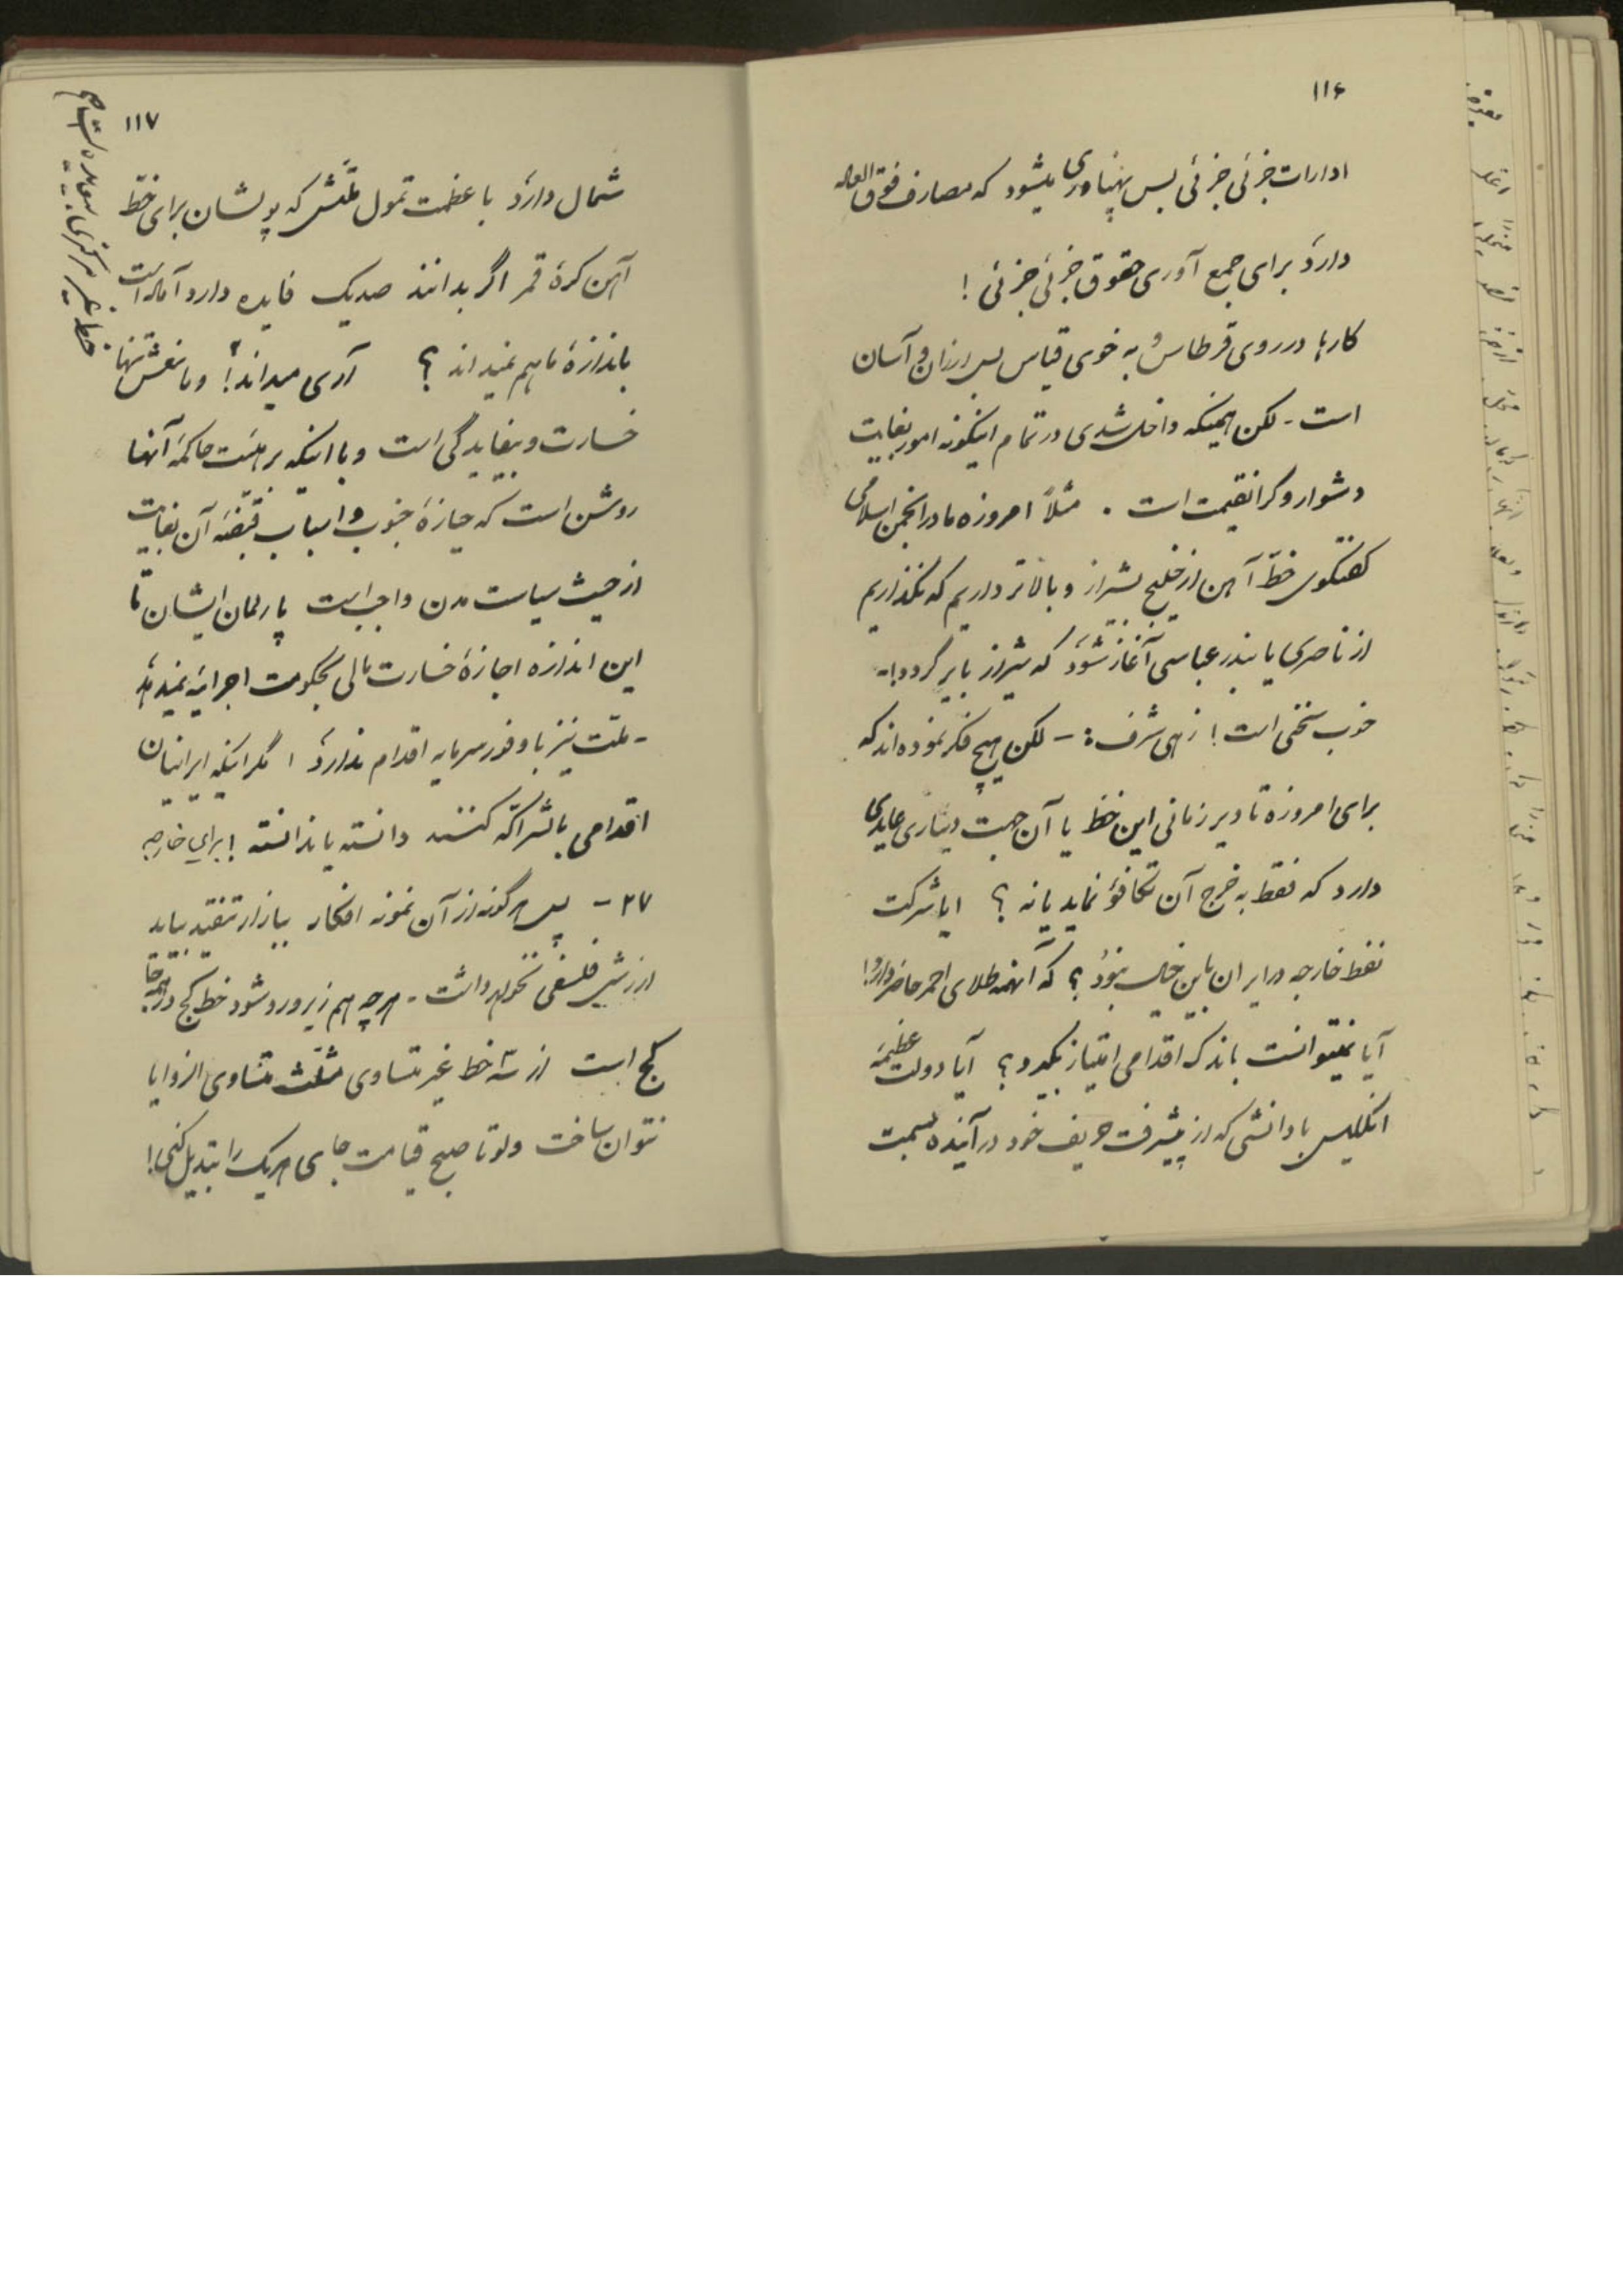 ۱۱۶
ادارات جزئی جزئی بس پهناوری میشود که مصارف فوق العاده
دارد برای جمع آوری حقوق جزئی جزئی !
کارها در روی قرطاس و به خوی قیاس بس ارزان و آسان
است - لکن همینکه داخل شدی در تمام اینگونه امور بغایت
دشوار و گرانقیمت است . مثلاً امروزه ما در انجمن اسلامی
گفتگوی خط آهن از خلیج بشیراز و بالاتر داریم که نگذاریم
از ناصری یا بندر عباسی آغاز شود که شیراز بایر گردد! -
خوب سخنی است ! زهی شرف : - لکن هیچ فکر نموده اند که
برای امروزه تا دیر زمانی این خط یا آن جهت دیناری عایدی
دارد که فقط به خرج آن تکافؤ نماید یا نه ؟ ایا شرکت
نفط خارجه در ایران باین خیال نبود ؟ که آنهمه طلای احمر حاضر دارد !
آیا نمیتوانست باندک اقدامی امتیاز بگیرد ؟ آیا دولت عظیمهٔ
انگلیس با دانشی که از پیشرفت حریف خود در آینده بسمت
۱۱۷
شمال دارد با عظمت تمول ملتش که پولشان برای خط
آهن کرهٔ قمر اگر بدانند صدیک فایده دارد آماده است
باندازهٔ ما هم نمیداند ؟ آری میداند ! و مانعش تنها
خسارت و بیفایدگی است و با اینکه بر هیئت حاکمهٔ آنها
روشن است که حیازهٔ جنوب و اسباب قبضهٔ آن بغایت
از حیث سیاست مدن واجب است پارلمان ایشان تا
این اندازه اجازهٔ خسارت مالی بحکومت اجرائیه نمیدهد
- ملت نیز با وفور سرمایه اقدام ندارد ، مگر اینکه ایرانیان
اقدامی باشراکه کنند دانسته یا ندانسته ! برای خارجه
۲۷ - پس هر گونه از آن نمونه افکار ببازار تنقید بیاید
ارزش فلسفی نخواهد داشت - هر چه هم زیر و رو شود خط کج در همه جا
کج است از سه خط غیر متساوی مثلث متساوی الزوایا
نتوان ساخت ولو تا صبح قیامت جای هر یک را تبدیل کنی !